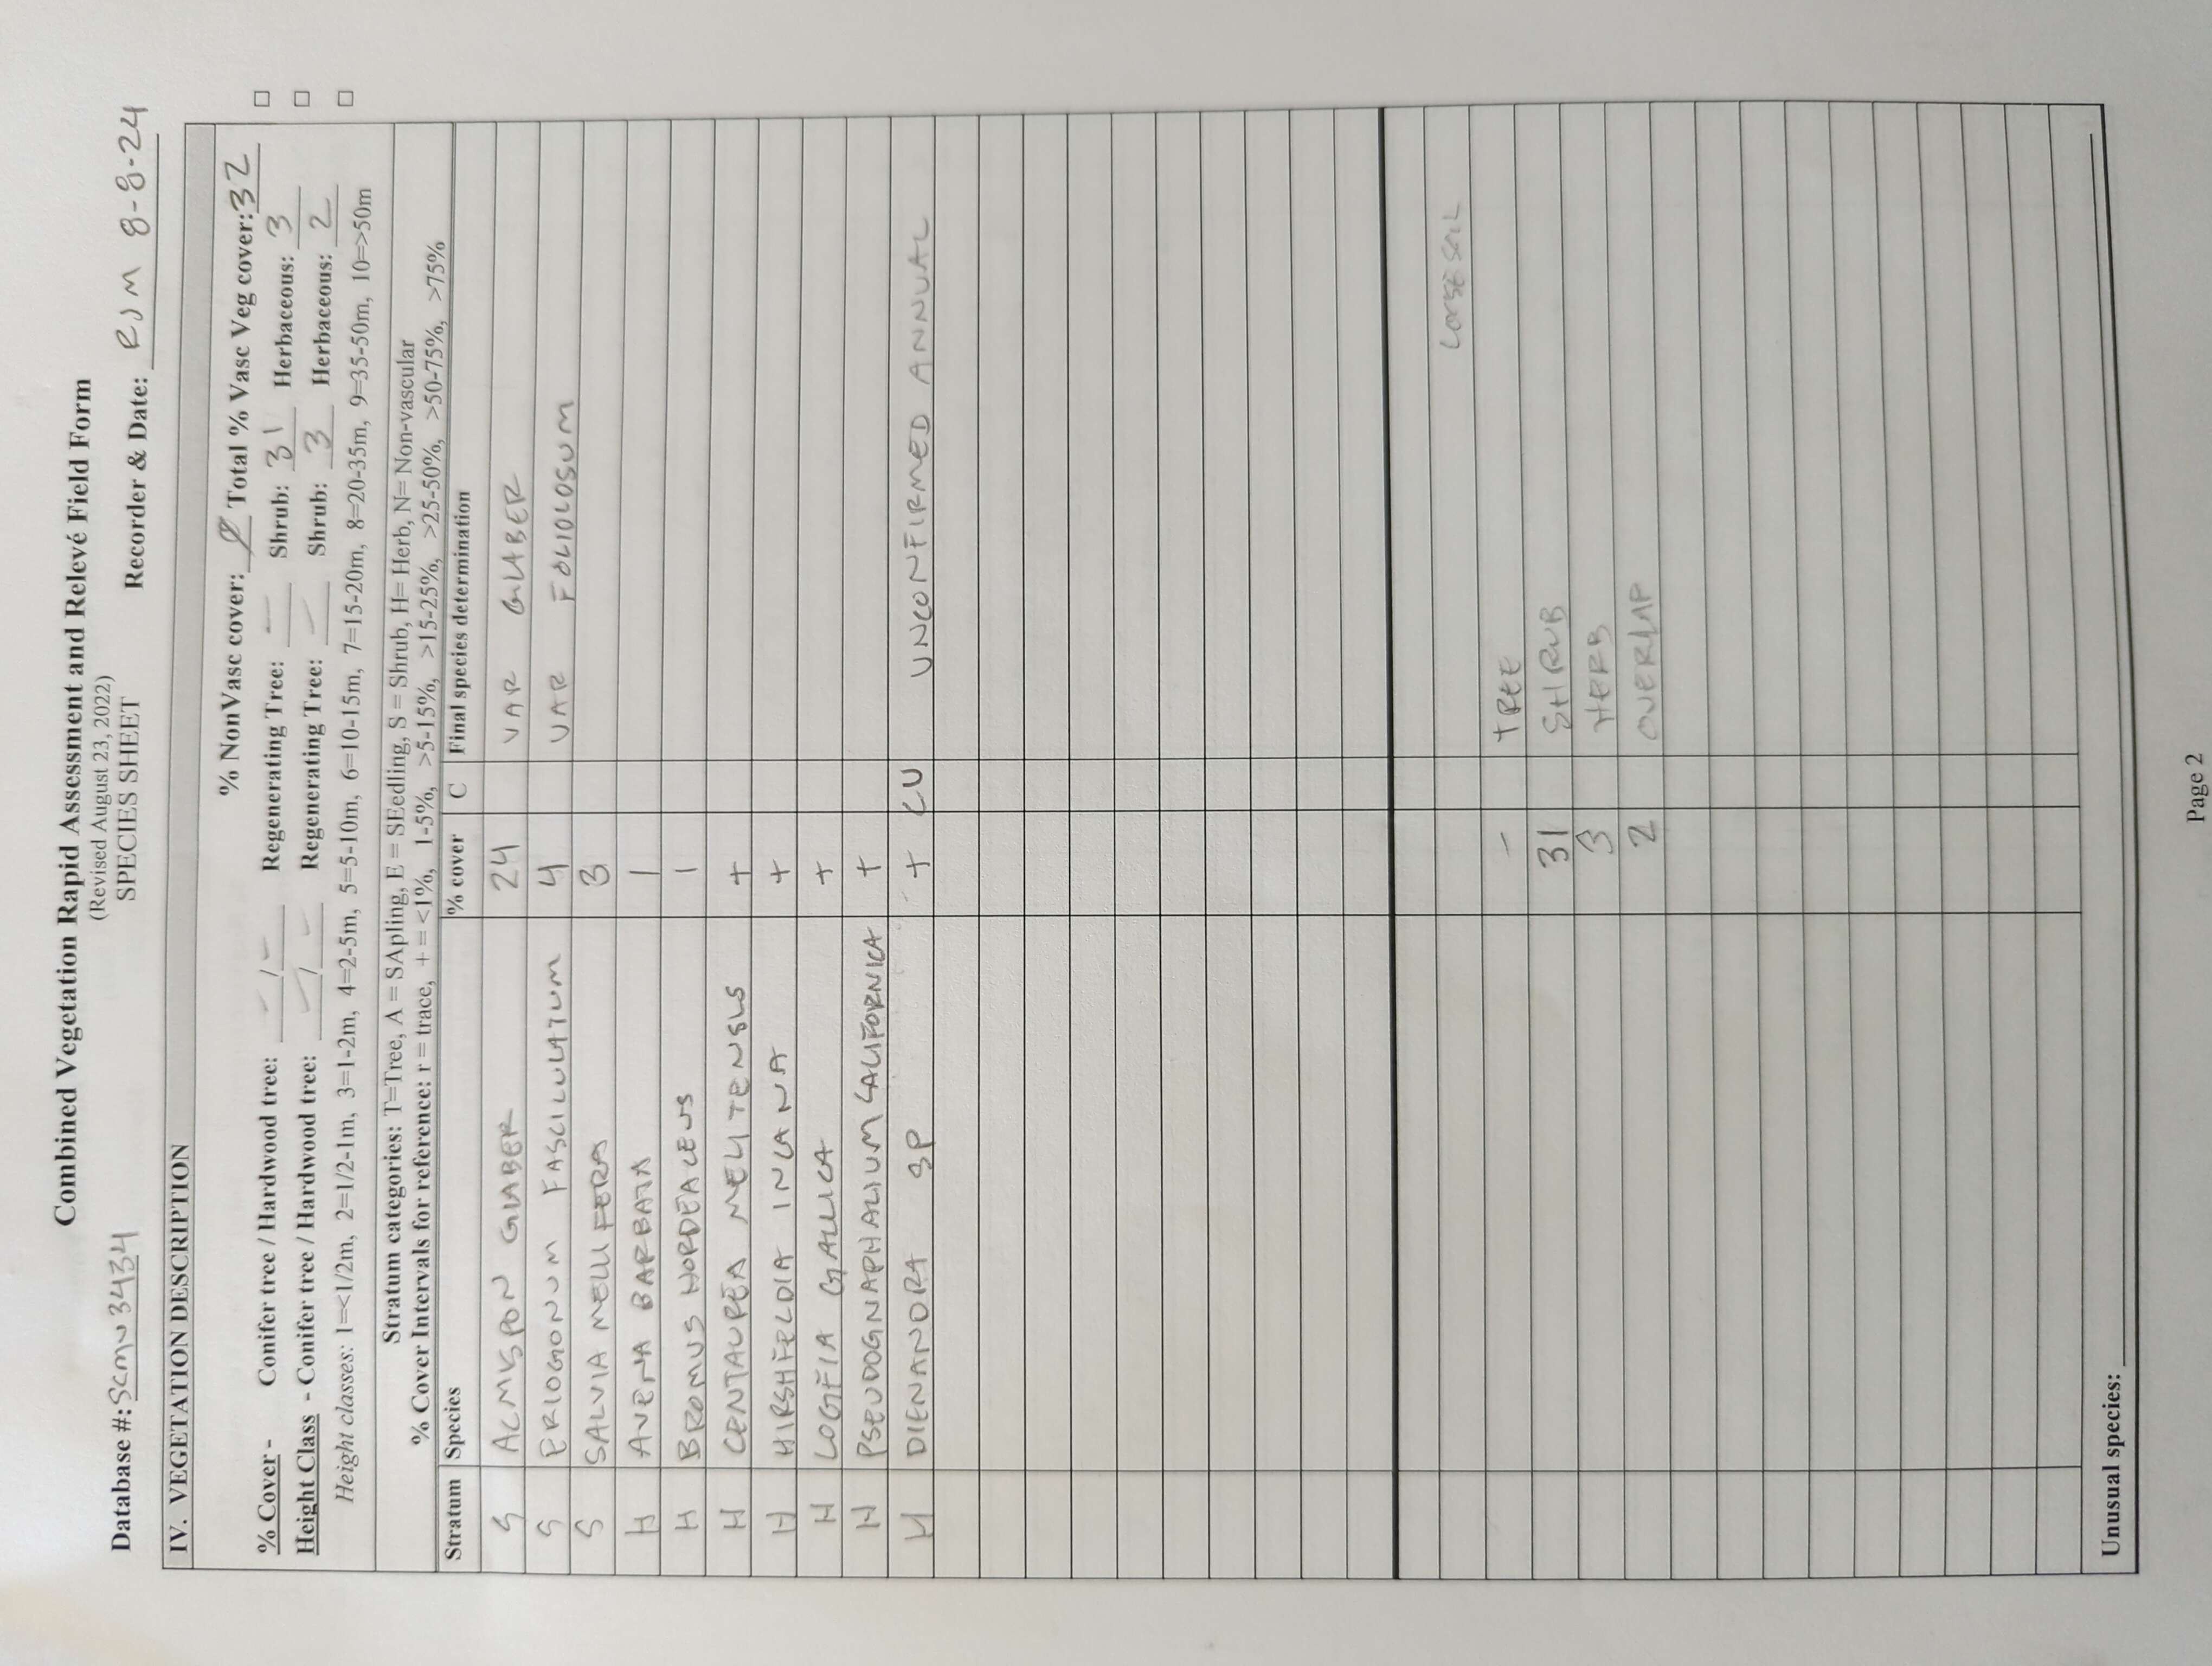 Combined Vegetation Rapid Assessment and Relevé Field Form
(Revised August 23, 2022)
SPECIES SHEET
Database #: SCMN3434 Recorder & Date: RJM 8-8-24
IV. VEGETATION DESCRIPTION
% NonVasc cover: Ø Total % Vasc Veg cover: 32
% Cover - Conifer tree / Hardwood tree: - / - Regenerating Tree: - Shrub: 31 Herbaceous: 3 □
Height Class - Conifer tree / Hardwood tree: - / - Regenerating Tree: - Shrub: 3 Herbaceous: 2 □
Height classes: 1=<1/2m, 2=1/2-1m, 3=1-2m, 4=2-5m, 5=5-10m, 6=10-15m, 7=15-20m, 8=20-35m, 9=35-50m, 10=>50m □
Stratum categories: T=Tree, A = SApling, E = SEedling, S = Shrub, H= Herb, N= Non-vascular
% Cover Intervals for reference: r = trace, + = <1%, 1-5%, >5-15%, >15-25%, >25-50%, >50-75%, >75%
Stratum Species % cover C Final species determination
S ACMISPON GLABER 24 VAR GLABER
S ERIOGONUM FASCICULATUM 4 VAR FOLIOLOSUM
S SALVIA MELLIFERA 3
H AVENA BARBATA 1
H BROMUS HORDEACEUS 1
H CENTAUREA MELITENSIS +
H HIRSHFELDIA INCANA +
H LOGFIA GALLICA +
H PSEUDOGNAPHALIUM CALIFORNICA +
H DIENANDRA SP + CU UNCONFIRMED ANNUAL
LOOSE SOIL
- TREE
31 SHRUB
3 HERB
2 OVERLAP
Unusual species:
Page 2